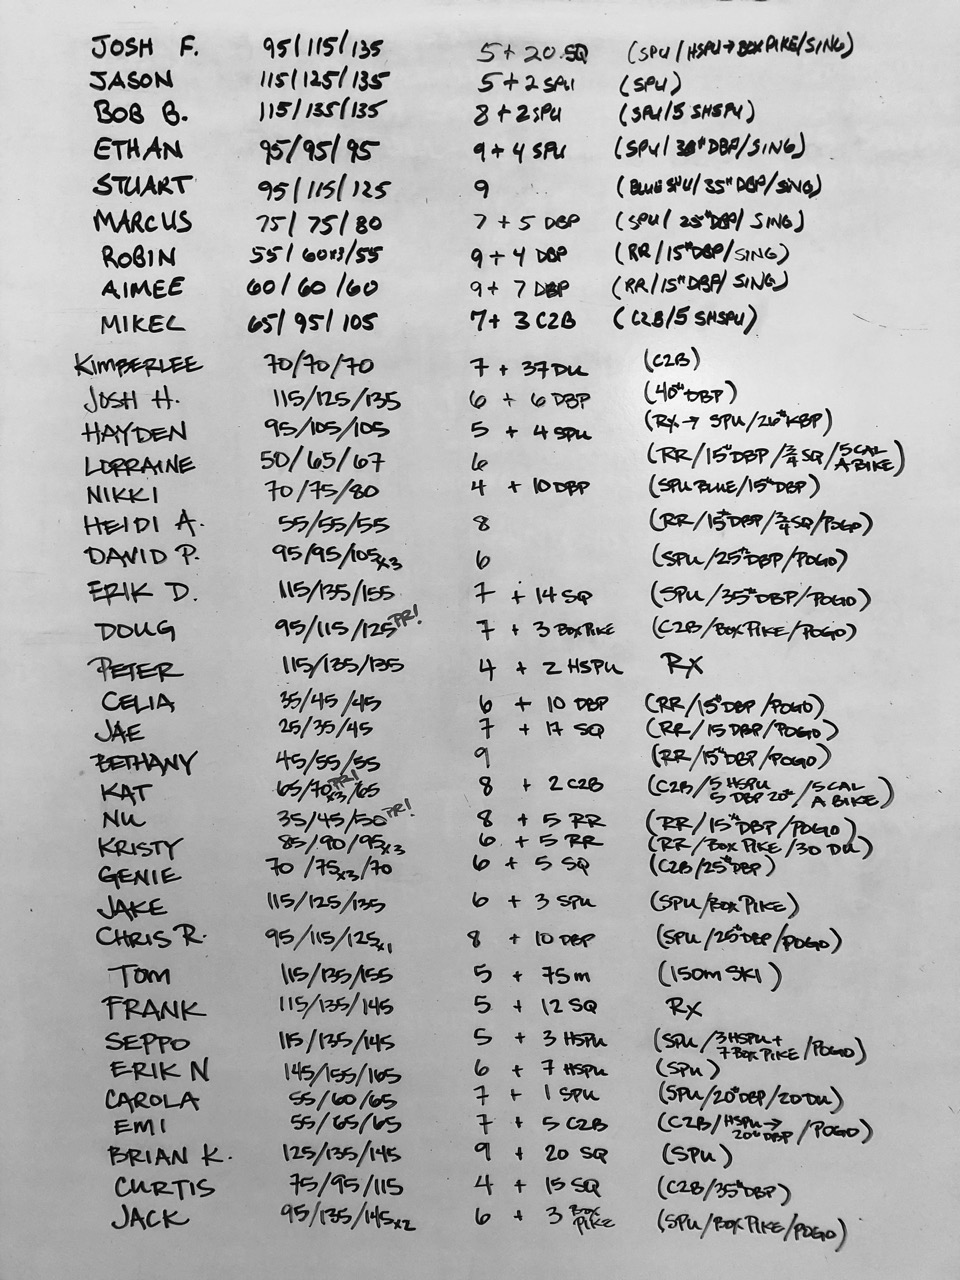 JOSH F. 95/115/135 5 + 20 SQ (SPU/HSPU→BOX PIKE/SING)
JASON 115/125/135 5 + 2 SPU (SPU)
BOB B. 115/135/135 8 + 2 SPU (SPU/5 SHSPU)
ETHAN 95/95/95 9 + 4 SPU (SPU/ DBP/SING)
STUART 95/115/125 9 (BLUE SPU/35# DBP/SING)
MARCUS 75/75/80 7 + 5 DBP (SPU/25# DBP/SING)
ROBIN 55/60x3/55 9 + 4 DBP (RR/15# DBP/SING)
AIMEE 60/60/60 9 + 7 DBP (RR/15# DBP/SING)
MIKEL 65/95/105 7 + 3 C2B (C2B/5 SHSPU)
KIMBERLEE 70/70/70 7 + 37 DU (C2B)
JOSH H. 115/125/135 6 + 6 DBP (40# DBP)
HAYDEN 95/105/105 5 + 4 SPU (RX → SPU/26# KBP)
LORRAINE 50/65/67 6 (RR/15# DBP/3/4 SQ/5 CAL A BIKE)
NIKKI 70/75/80 4 + 10 DBP (SPU BLUE/15# DBP)
HEIDI A. 55/55/55 8 (RR/15# DBP/3/4 SQ/POGO)
DAVID P. 95/95/105x3 6 (SPU/25# DBP/POGO)
ERIK D. 115/135/155 7 + 14 SQ (SPU/35# DBP/POGO)
DOUG 95/115/125 PR! 7 + 3 BOX PIKE (C2B/BOX PIKE/POGO)
PETER 115/135/135 4 + 2 HSPU RX
CELIA 35/45/45 6 + 10 DBP (RR/15# DBP/POGO)
JAE 25/35/45 7 + 17 SQ (RR/15 DBP/POGO)
BETHANY 45/55/55 9 (RR/15# DBP/POGO)
KAT 65/70x3 PR!/65 8 + 2 C2B (C2B/5 HSPU 5 DBP 20#/5 CAL A BIKE)
NU 35/45/50 PR! 8 + 5 RR (RR/15# DBP/POGO)
KRISTY 85/90/95x3 6 + 5 RR (RR/BOX PIKE/30 DU)
GENIE 70/75x3/70 6 + 5 SQ (C2B/25# DBP)
JAKE 115/125/135 6 + 3 SPU (SPU/BOX PIKE)
CHRIS R. 95/115/125x1 8 + 10 DBP (SPU/25# DBP/POGO)
TOM 115/135/155 5 + 75m (150m SKI)
FRANK 115/135/145 5 + 12 SQ RX
SEPPO 115/135/145 5 + 3 HSPU (SPU/3 HSPU + 7 BOX PIKE/POGO)
ERIK N 145/155/165 6 + 7 HSPU (SPU)
CAROLA 55/60/65 7 + 1 SPU (SPU/20# DBP/20 DU)
EMI 55/65/65 7 + 5 C2B (C2B/HSPU → 20# DBP/POGO)
BRIAN K. 125/135/145 9 + 20 SQ (SPU)
CURTIS 75/95/115 4 + 15 SQ (C2B/35# DBP)
JACK 95/135/145x2 6 + 3 BOX PIKE (SPU/BOX PIKE/POGO)